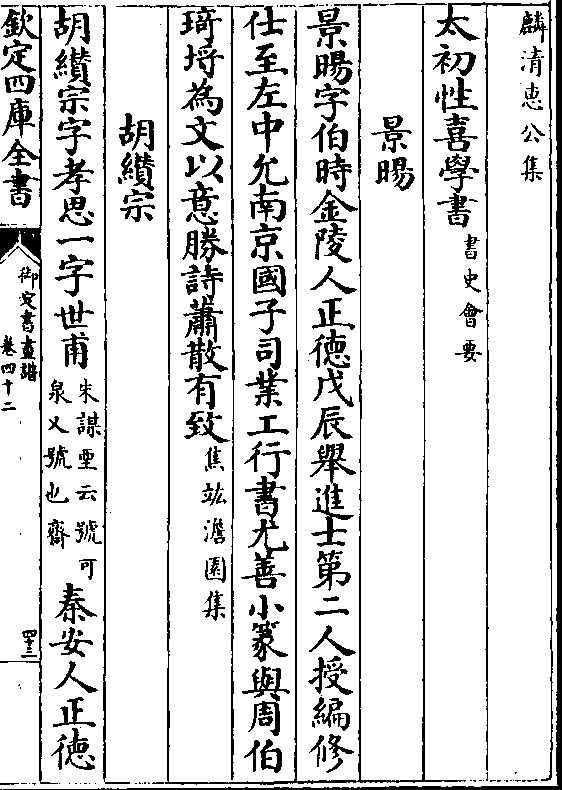 麟清恵公集
太初性喜學書書史會要
景暘
景暘字伯時金陵人正德戊辰舉進士第二人授編修
仕至左中允南京國子司業工行書尤善小篆與周伯
琦埒為文以意勝詩蕭散有致焦竑澹園集
胡纘宗
胡纘宗字孝思一字世甫朱謀垔云號可泉又號也齋秦安人正德
欽定四庫全書
御定書畫譜
卷四十二
四十三